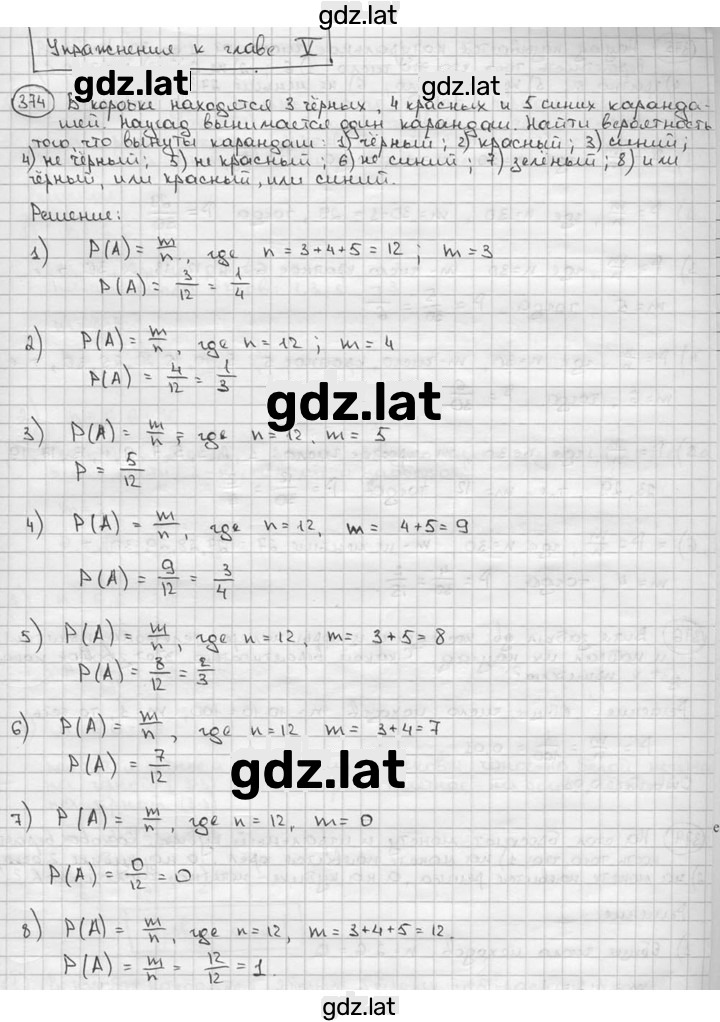 gdz.lat
Упражнения к главе V
gdz.lat
gdz.lat
374 В коробке находятся 3 чёрных, 4 красных и 5 синих каранда-
шей. Наугад вынимается один карандаш. Найти вероятность
того, что вынуты карандаш: 1) чёрный; 2) красный; 3) синий;
4) не чёрный; 5) не красный; 6) не синий; 7) зелёный; 8) или
чёрный, или красный, или синий.
Решение:
1) P(A) = m/n, где n = 3+4+5 = 12; m = 3
P(A) = 3/12 = 1/4
2) P(A) = m/n, где n = 12; m = 4
P(A) = 4/12 = 1/3
gdz.lat
3) P(A) = m/n, где n = 12, m = 5
P = 5/12
4) P(A) = m/n, где n = 12, m = 4+5 = 9
P(A) = 9/12 = 3/4
5) P(A) = m/n, где n = 12, m = 3+5 = 8
P(A) = 8/12 = 2/3
6) P(A) = m/n, где n = 12 m = 3+4 = 7
P(A) = 7/12
gdz.lat
7) P(A) = m/n, где n = 12, m = 0
P(A) = 0/12 = 0
8) P(A) = m/n, где n = 12, m = 3+4+5 = 12.
P(A) = m/n = 12/12 = 1.
gdz.lat